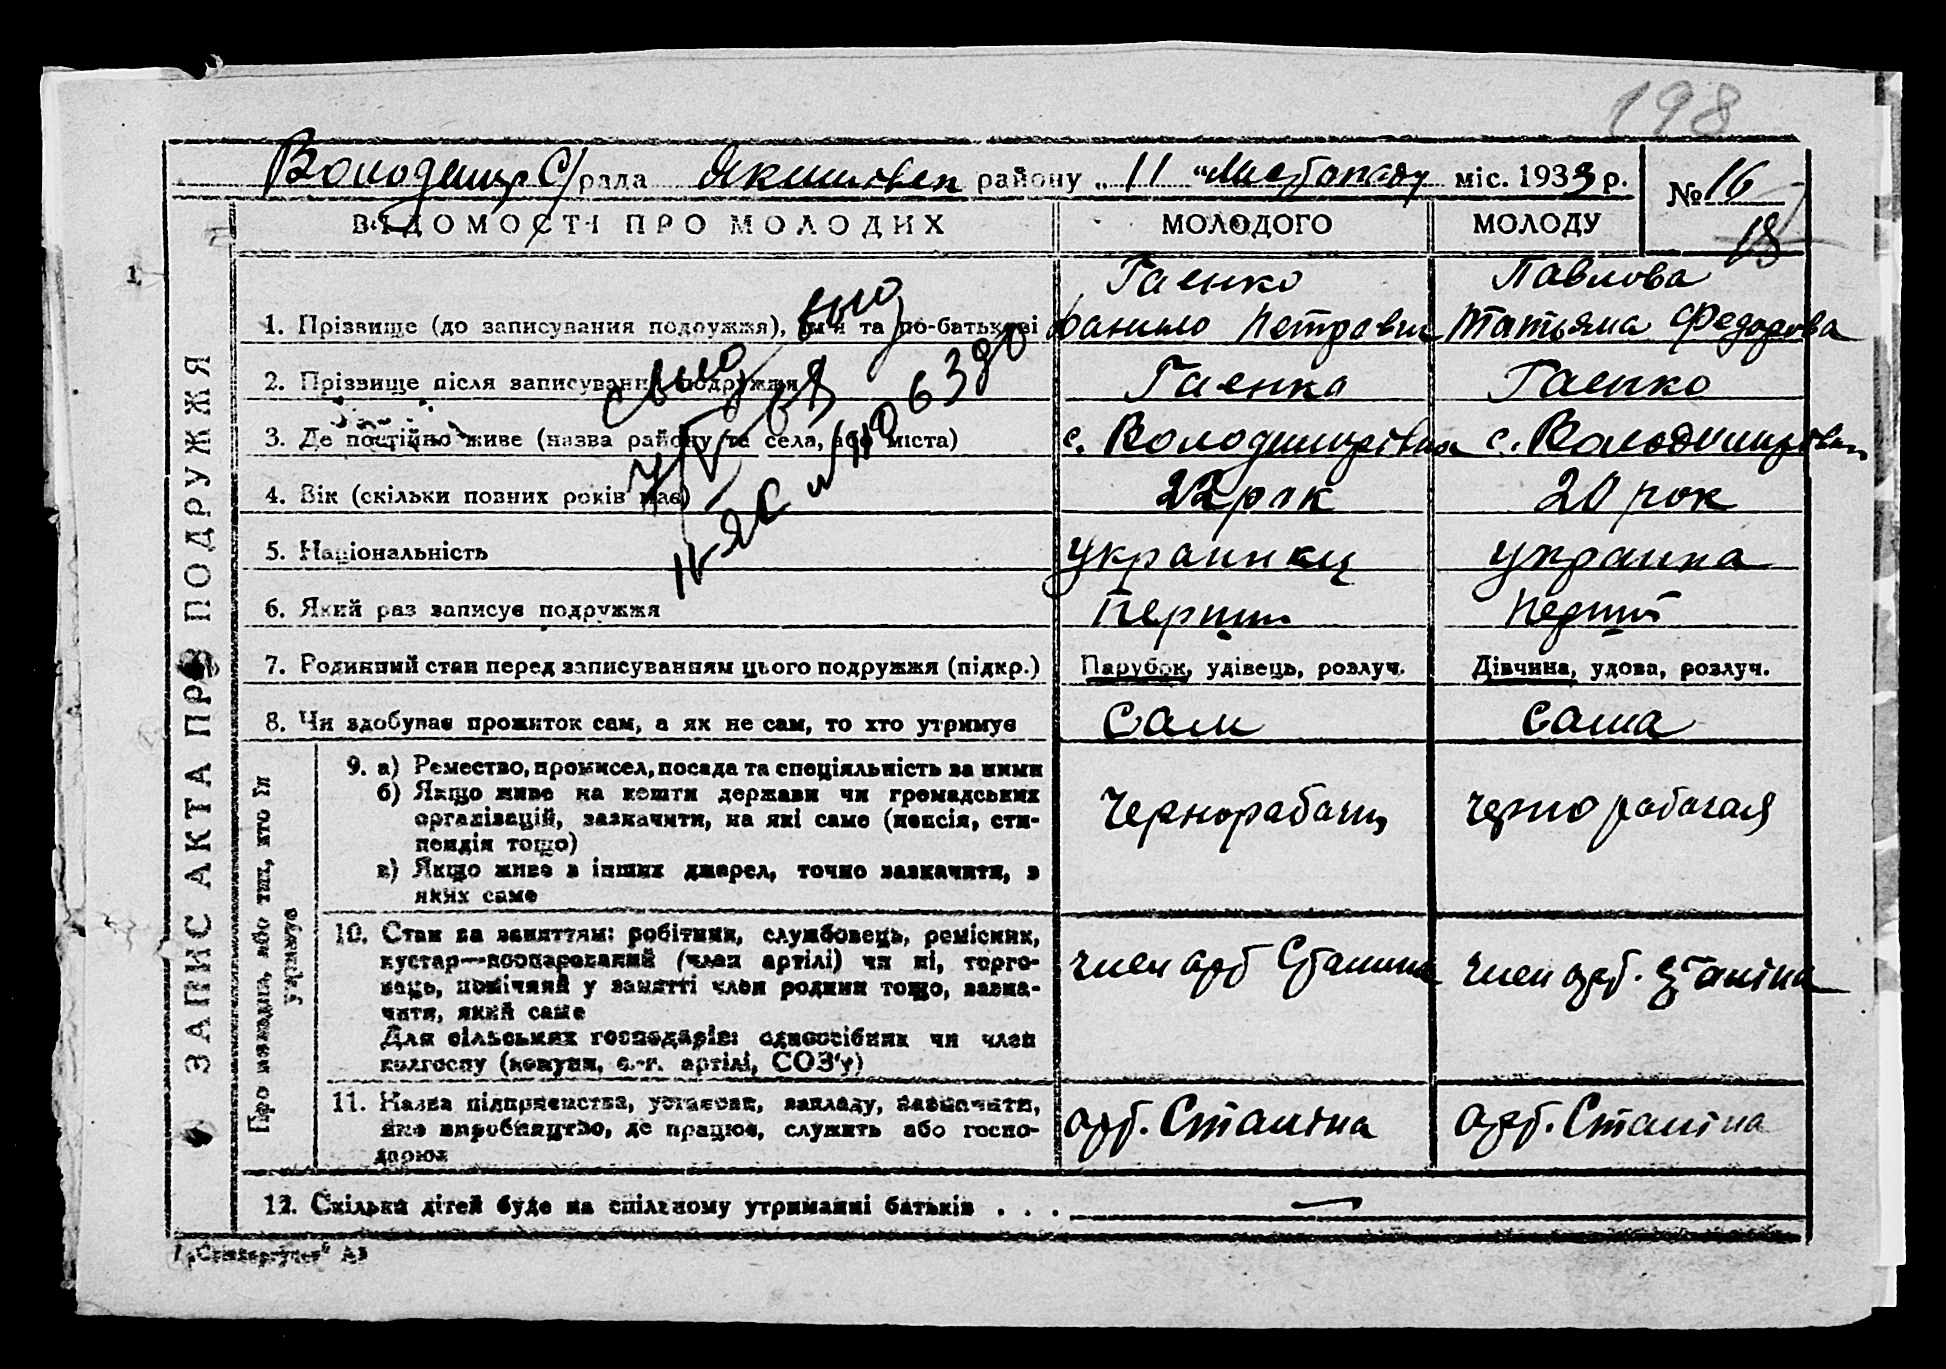 198
Володимир С/рада Якимівськ району „ 11 “ Листопаду міс. 1933 р. № 16
18
ВІДОМОСТІ ПРО МОЛОДИХ МОЛОДОГО МОЛОДУ
1
ЗАПИС АКТА ПРО ПОДРУЖЖЯ
Гаенко Павлова
1. Прізвище (до записування подружжя), ім'я та по-батькові Данило Петрович Татьяна Федорова
2. Прізвище після записування подружжя Гаенко Гаенко
3. Де постійно живе (назва району та села, або міста) с. Володимирівка с. Володимирівка
4. Вік (скільки повних років має) 22 рок 20 рок
5. Національність украинец украинка
6. Який раз записує подружжя Перший Перший
7. Родинний стан перед записуванням цього подружжя (підкр.) Парубок, удівець, розлуч. Дівчина, удова, розлуч.
8. Чи здобуває прожиток сам, а як не сам, то хто утримує Сам сама
Про молодих, або тих, хто їх утримує
9. а) Ремество, промисел, посада та спеціяльність за ними
б) Якщо живе на кошти держави чи громадських
організацій, зазначити, на які саме (пенсія, сти-
пендія тощо)
в) Якщо живе з інших джерел, точно зазначити, з
яких саме
Чернорабочи чернорабочая
10. Стан за заняттям: робітник, службовець, ремісник,
кустар—кооперований (член артілі) чи ні, торго-
вець, помічний у занятті член родини тощо, зазна-
чити, який саме
Для сільських господарів: одноосібник чи член
колгоспу (комуни, с.-г. артілі, СОЗ'у)
член арт Сталина член арт. Сталіна
11. Назва підприємства, установи, закладу, зазначити,
яке виробництво, де працює, служить або госпо-
дарює
арт. Сталіна арт. Сталіна
12. Скільки дітей буде на спільному утриманні батьків . . . —